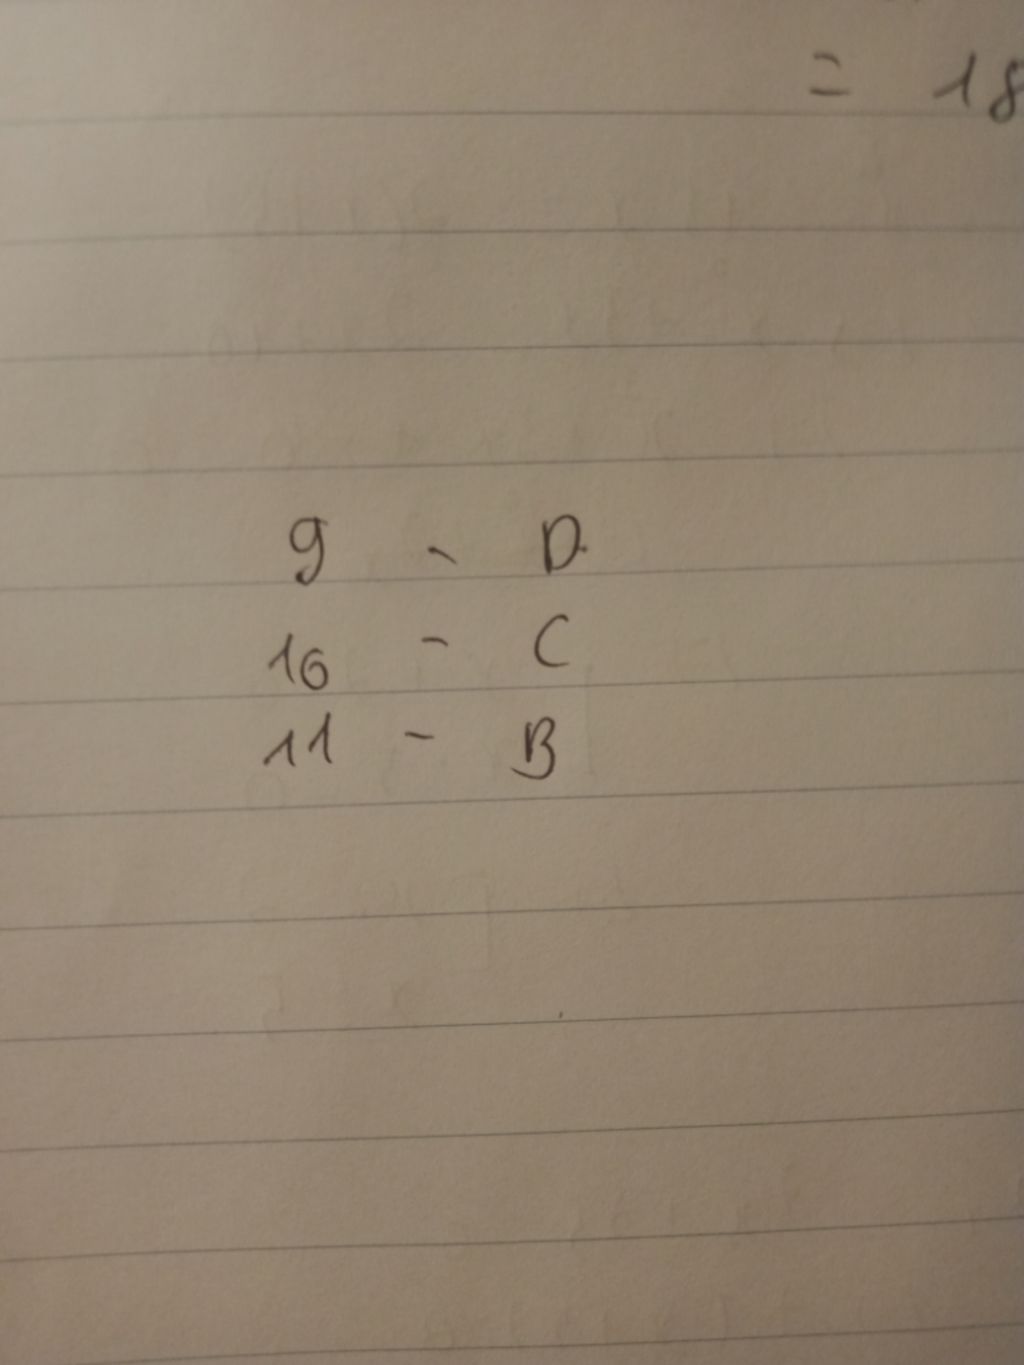 = 18
9 - D
10 - C
11 - B